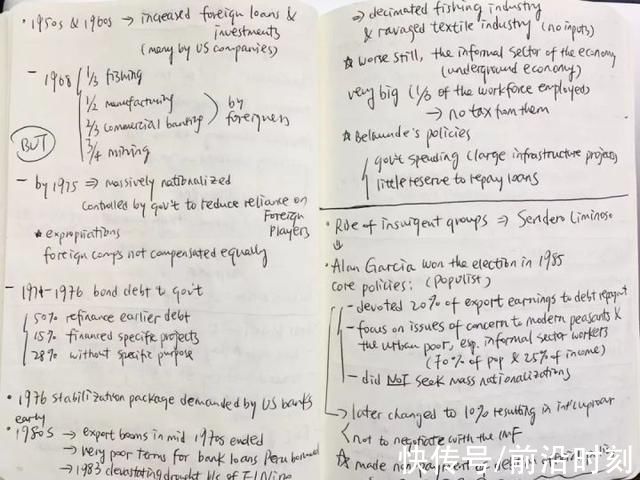 • 1950s & 1960s → increased foreign loans &
investments
(many by US companies)
- 1968 1/3 fishing
1/2 manufacturing
2/3 commercial banking
3/4 mining
by
foreigners
BUT
- by 1975 ⇒ massively nationalized
controlled by gov't to reduce reliance on
Foreign
Players
* expropriations
foreign comps not compensated equally
- 1974-1976 bond debt to gov't
50% refinance earlier debt
15% financed specific projects
28% without specific purpose
• 1976 stabilization package demanded by US banks
early
• 1980s → export booms in mid 1970s ended
→ very poor terms for bank loans Peru borrowed
→ 1983 devastating drought b/c of El Nino
⇒ decimated fishing industry
& ravaged textile industry (no inputs)
* worse still, the informal sector of the economy
(underground economy)
very big (1/3 of the workforce employed)
→ no tax from them
* Belaunde's policies
gov't spending (large infrastructure projects
little reserve to repay loans
• Role of insurgent groups ⇒ Sendero Liminoso
• Alan Garcia won the election in 1985
core policies: (populist)
- devoted 20% of export earnings to debt repaymt
- focus on issues of concern to modern peasants &
the urban poor, esp. informal sector workers
(70% of pop & 25% of income)
- did NOT seek mass nationalizations
→ later changed to 10% resulting in int'l uproar
not to negotiate with the IMF
* made no payment of debt
快传号/前沿时刻